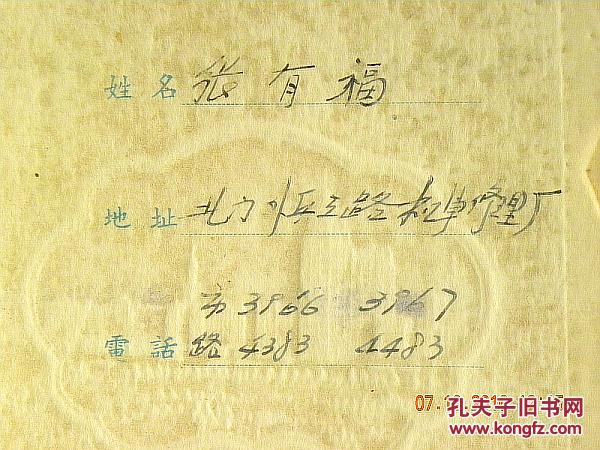 姓名 張有福
地址 北门外兵工路机車修理厂
市 3966 3967
電話 路 4383 4483
07.
孔夫子旧书网
www.kongfz.com